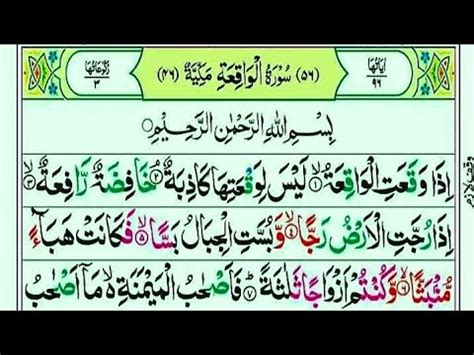 اٰیَاتُهَا
۹۶
(۵۶) سُوْرَةُ الْوَاقِعَةِ مَكِّيَّةٌ (۴۶)
رُكُوْعَاتُهَا
۳
بِسْمِ اللّٰهِ الرَّحْمٰنِ الرَّحِیْمِ
اِذَا وَقَعَتِ الْوَاقِعَةُ ۙ﴿۱﴾ لَیْسَ لِوَقْعَتِهَا كَاذِبَةٌ ۘ﴿۲﴾ خَافِضَةٌ رَّافِعَةٌ ۙ﴿۳﴾
وقف لازم
اِذَا رُجَّتِ الْاَرْضُ رَجًّا ۙ﴿۴﴾ وَّ بُسَّتِ الْجِبَالُ بَسًّا ۙ﴿۵﴾ فَكَانَتْ هَبَآءً
مُّنْۢبَثًّا ۙ﴿۶﴾ وَّ كُنْتُمْ اَزْوَاجًا ثَلٰثَةً ؕ﴿۷﴾ فَاَصْحٰبُ الْمَیْمَنَةِ ۙ۬ مَاۤ اَصْحٰبُ